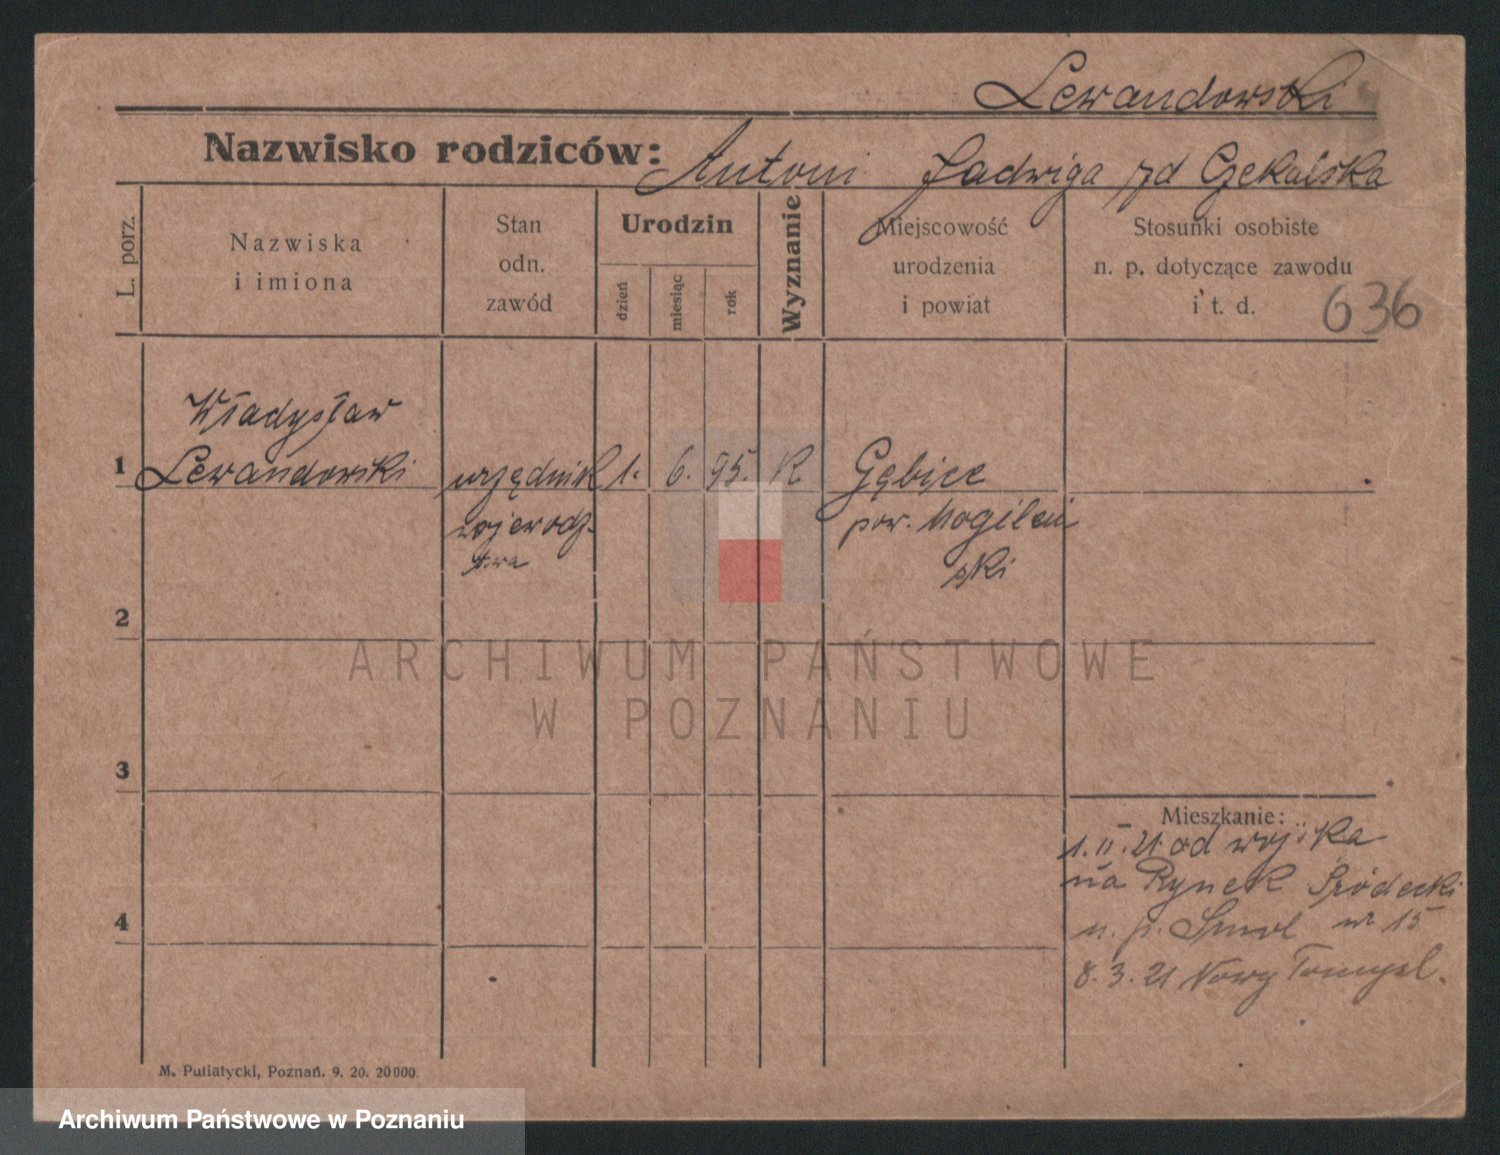 Lewandowski
Nazwisko rodziców: Antoni Jadwiga zd Czekalska
L. porz.
Nazwiska
i imiona
Stan
odn.
zawód
Urodzin
dzień
miesiąc
rok
Wyznanie
Miejscowość
urodzenia
i powiat
Stosunki osobiste
n. p. dotyczące zawodu
i t. d.
636
Władysław
1 Lewandowski urzędnik 1. 6. 95. K Gębice
wojewodz- pow. Mogileń
twa ski
2
3
4
Mieszkanie:
1. II. 21 od wojska
na Rynek Śródecki
u. p. nr 15
8. 3. 21 Nowy Tomysl.
M. Putiatycki, Poznań. 9. 20. 20000.
ARCHIWUM PAŃSTWOWE
W POZNANIU
Archiwum Państwowe w Poznaniu